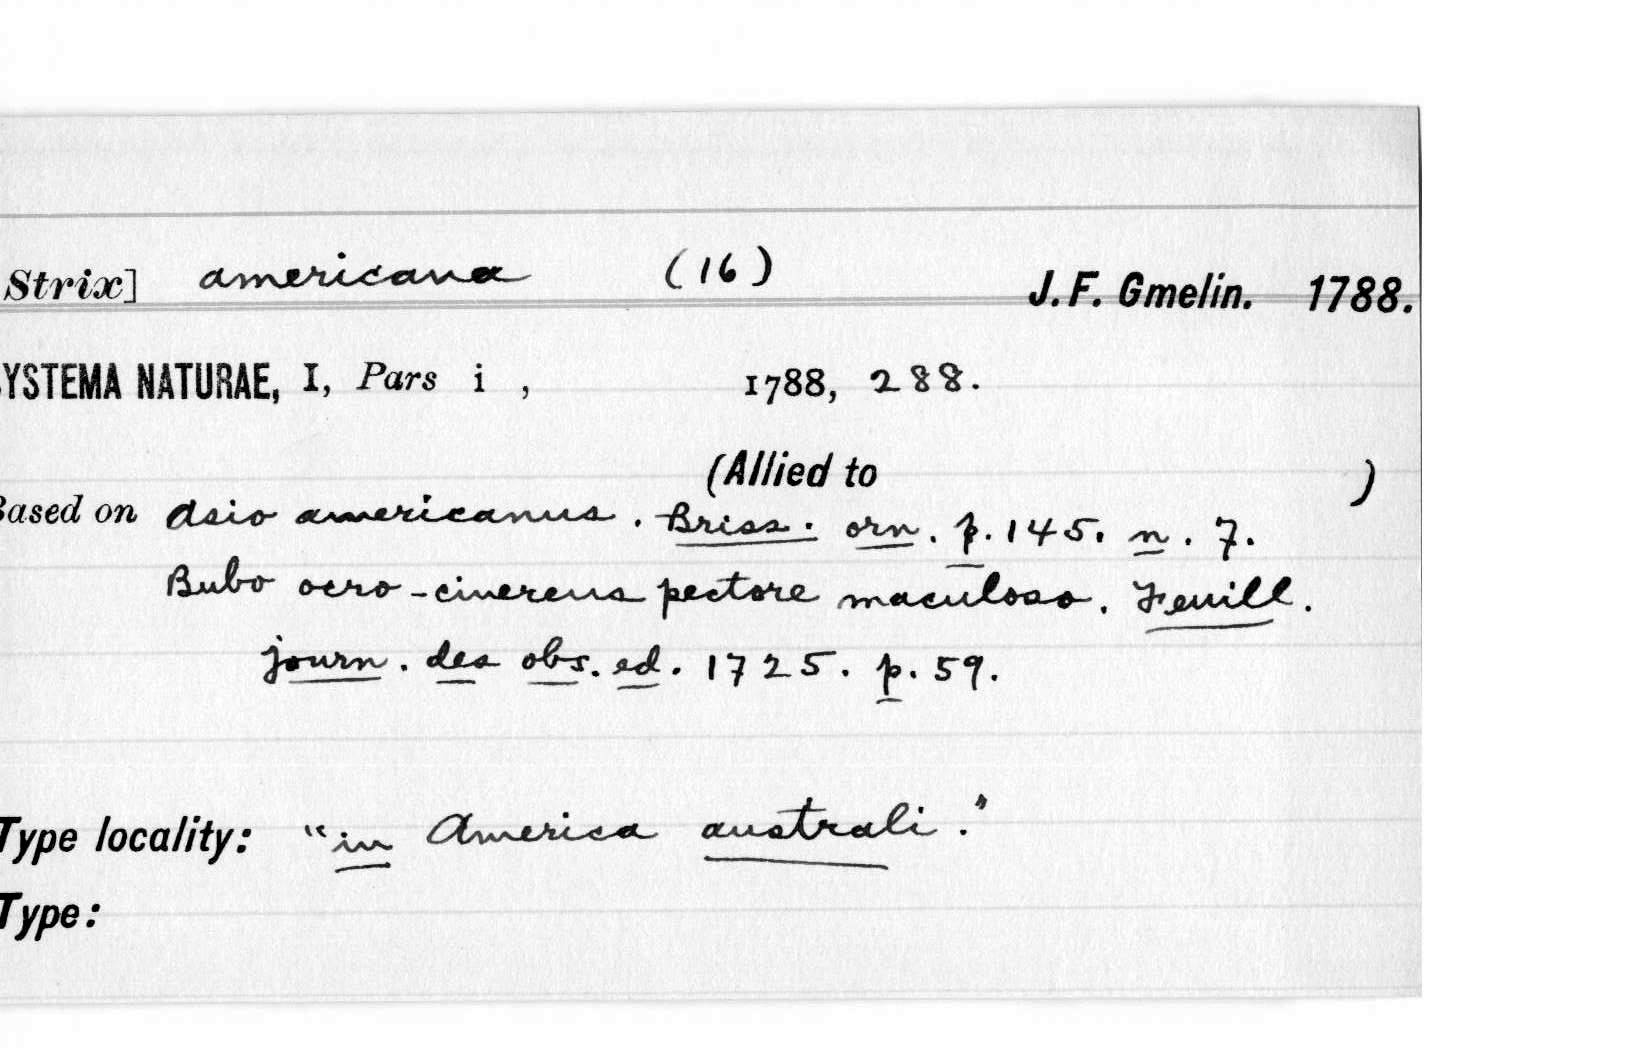 Strix] americana (16) J. F. Gmelin. 1788.
YSTEMA NATURAE, I, Pars i , 1788, 288.
(Allied to )
Based on Asio americanus. Briss. orn. p. 145. n. 7.
Bubo ocro-cinereus pectore maculoso. Feuill.
journ. des obs. ed. 1725. p. 59.
Type locality: "in America australi."
Type: